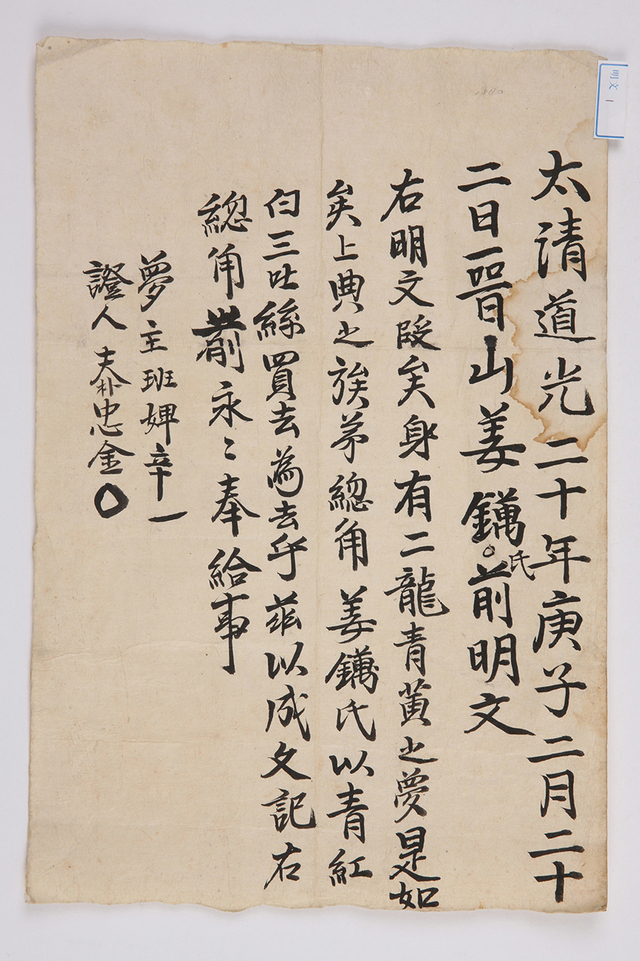 明文 1
太清道光二十年庚子二月二十
二日晋山姜氏前明文
右明文段矣身有二龍青黃之夢是如
矣上典之族弟總角姜氏以青紅
白三吐絲買去為去乎茲以成文記右
總角前永〻奉給事
夢主班婢辛一
證人夫朴忠金